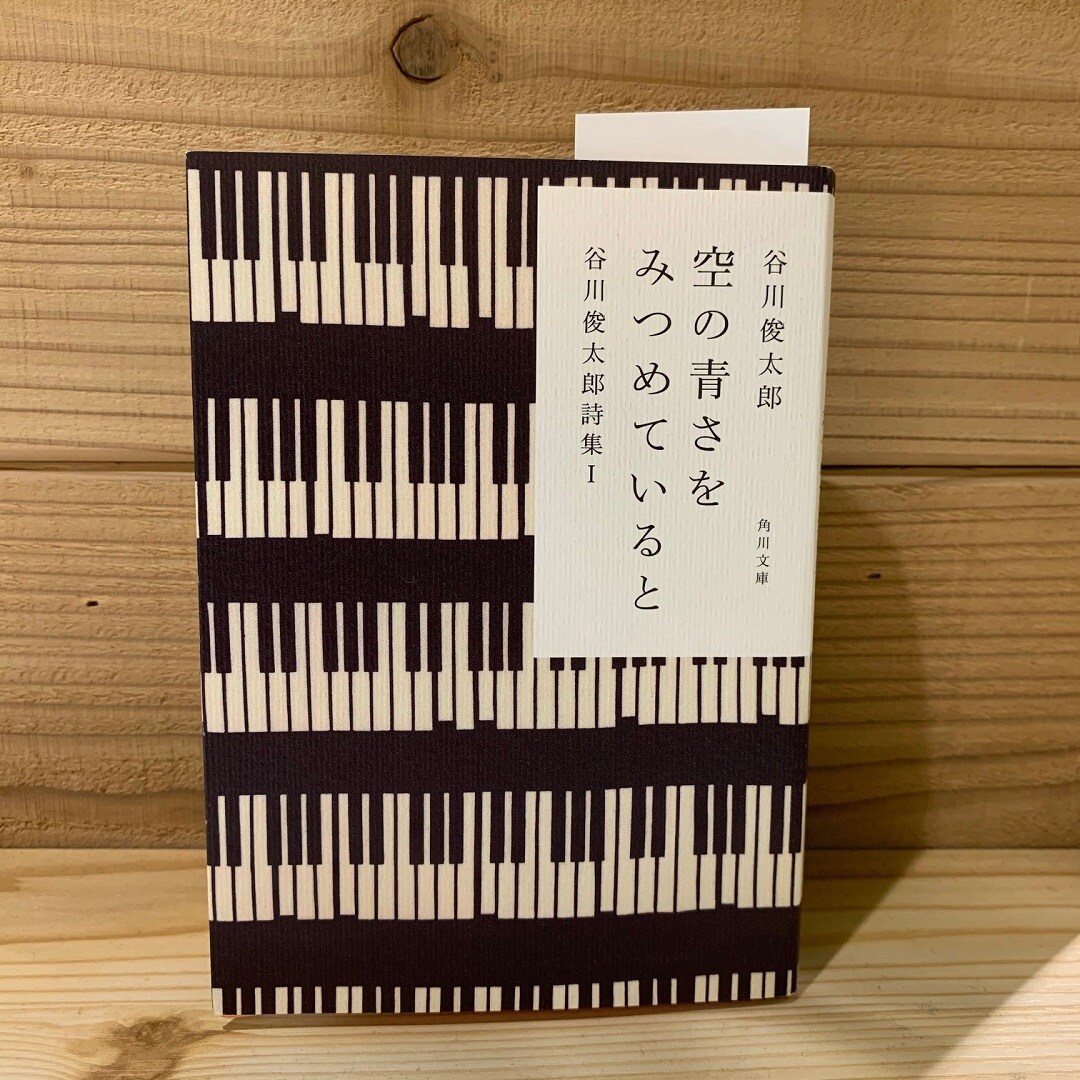 谷川俊太郎
角川文庫
空の青さを
みつめていると
谷川俊太郎詩集Ⅰ